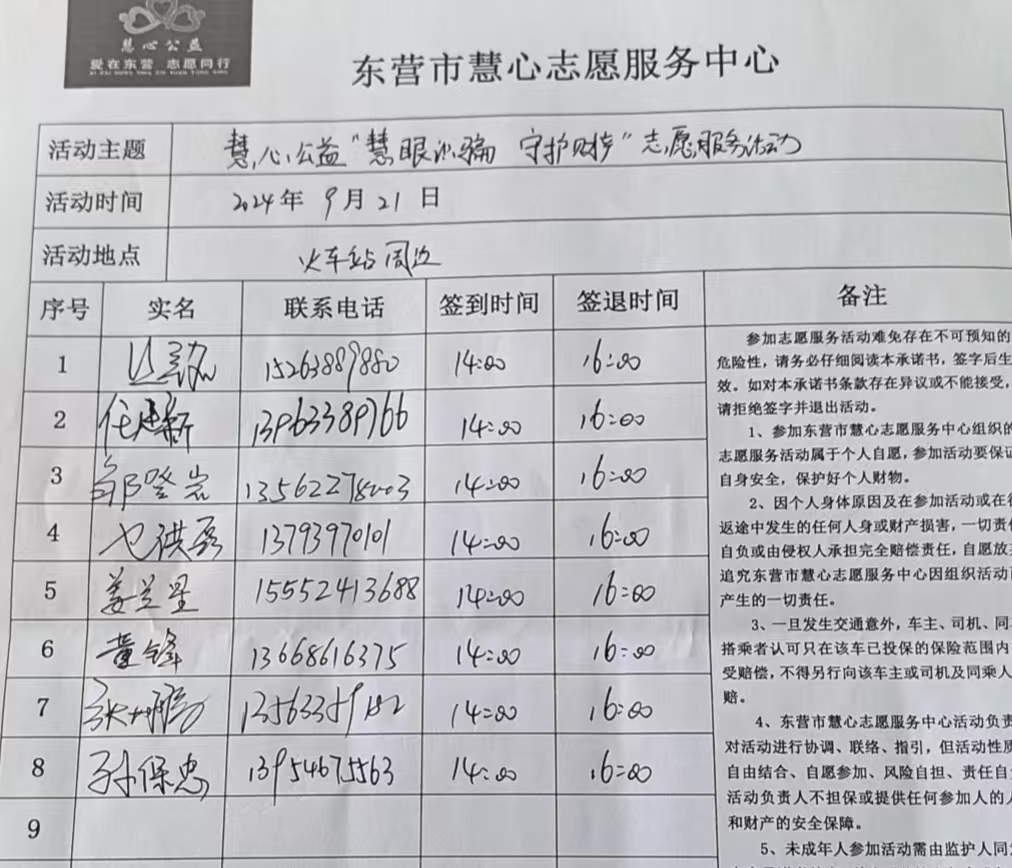 慧心公益
爱在东营 志愿同行
AI ZAI DONG YING ZHI YUAN TONG XING
东营市慧心志愿服务中心
活动主题 慧心公益“慧眼识骗 守护财产”志愿服务活动
活动时间 2024年 9月21日
活动地点 火车站周边
序号 实名 联系电话 签到时间 签退时间 备注
1 15263889880 14:00 16:00
2 任建新 13963389766 14:00 16:00
3 邹登岩 13562278003 14:00 16:00
4 13793970101 14:00 16:00
5 姜兰星 15552413688 14:00 16:00
6 黄锋 13668616375 14:00 16:00
7 14:00 16:00
8 孙保忠 13954675563 14:00 16:00
9
参加志愿服务活动难免存在不可预知的
危险性，请务必仔细阅读本承诺书，签字后生
效。如对本承诺书条款存在异议或不能接受，
请拒绝签字并退出活动。
1、参加东营市慧心志愿服务中心组织的
志愿服务活动属于个人自愿，参加活动要保证
自身安全，保护好个人财物。
2、因个人身体原因及在参加活动或在往
返途中发生的任何人身或财产损害，一切责任
自负或由侵权人承担完全赔偿责任，自愿放弃
追究东营市慧心志愿服务中心因组织活动而
产生的一切责任。
3、一旦发生交通意外，车主、司机、同
搭乘者认可只在该车已投保的保险范围内
受赔偿，不得另行向该车主或司机及同乘人
赔。
4、东营市慧心志愿服务中心活动负责
对活动进行协调、联络、指引，但活动性质
自由结合、自愿参加、风险自担、责任自
活动负责人不担保或提供任何参加人的人
和财产的安全保障。
5、未成年人参加活动需由监护人同